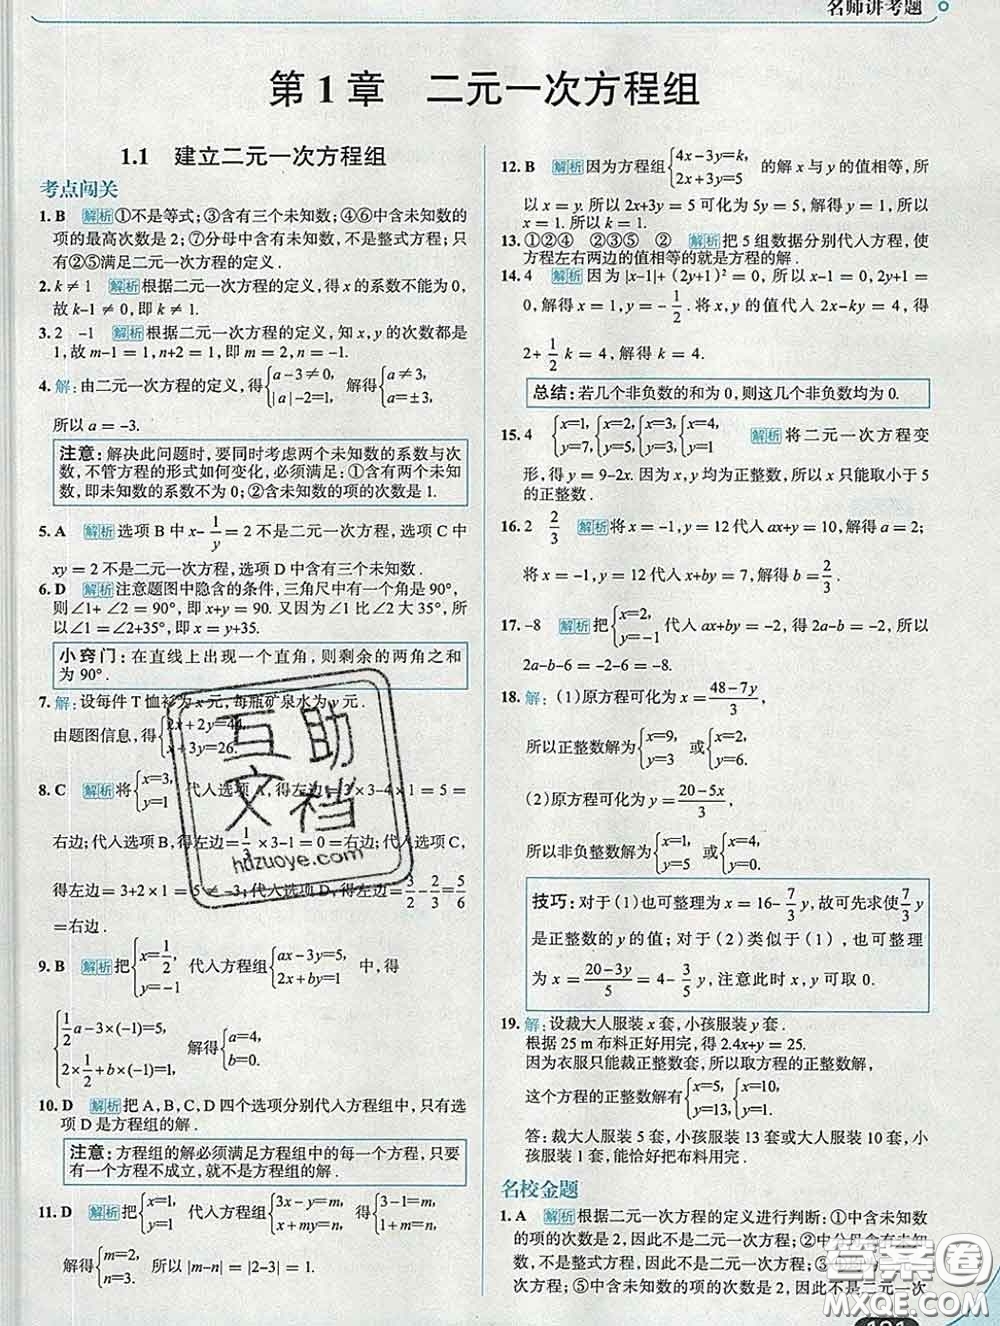 名师讲考题
第1章 二元一次方程组
1.1 建立二元一次方程组
考点闯关
1. B 解析 ①不是等式;③含有三个未知数;④⑥中含未知数的
项的最高次数是2;⑦分母中含有未知数,不是整式方程;只
有②⑤满足二元一次方程的定义.
2. k≠1 解析 根据二元一次方程的定义,得x的系数不能为0,
故k-1≠0,即k≠1.
3. 2 -1 解析 根据二元一次方程的定义,知x,y的次数都是
1,故m-1=1,n+2=1,即m=2,n=-1.
4. 解:由二元一次方程的定义,得{a-3≠0, |a|-2=1. 解得{a≠3, a=±3,
所以a=-3.
注意:解决此问题时,要同时考虑两个未知数的系数与次
数,不管方程的形式如何变化,必须满足:①含有两个未知
数,即未知数的系数不为0;②含未知数的项的次数是1.
5. A 解析 选项B中x-1/y=2不是二元一次方程,选项C中
xy=2不是二元一次方程,选项D中含有三个未知数.
6. D 解析 注意题图中隐含的条件,三角尺中有一个角是90°,
则∠1+∠2=90°,即x+y=90. 又因为∠1比∠2大35°,所
以∠1=∠2+35°,即x=y+35.
小窍门:在直线上出现一个直角,则剩余的两角之和
为90°.
7. 解:设每件T恤衫为x元,每瓶矿泉水为y元.
由题图信息,得{2x+2y=44, x+3y=26.
8. C 解析 将{x=3, y=1 代入选项A,得左边=3×3-4×1=5=
右边;代入选项B,得左边=1/3×3-1=0=右边;代入选项C,
得左边=3+2×1=5≠-3;代入选项D,得左边=3/2-2/3=5/6
=右边.
9. B 解析 把{x=1/2, y=-1 代入方程组{ax-3y=5, 2x+by=1 中,得
{1/2a-3×(-1)=5, 2×1/2+b×(-1)=1, 解得{a=4, b=0.
10. D 解析 把A,B,C,D四个选项分别代入方程组中,只有选
项D是方程组的解.
注意:方程组的解必须满足方程组中的每一个方程,只要
有一个方程不成立,就不是方程组的解.
11. D 解析 把{x=1, y=1 代入方程组{3x-y=m, x+my=n, 得{3-1=m, 1+m=n,
解得{m=2, n=3. 所以|m-n|=|2-3|=1.
12. B 解析 因为方程组{4x-3y=k, 2x+3y=5 的解x与y的值相等,所
以x=y. 所以2x+3y=5可化为5y=5,解得y=1. 所以
x=1. 所以k=1.
13. ①②④ ②③⑤ ② 解析 把5组数据分别代入方程,使
方程左右两边的值相等的就是方程的解.
14. 4 解析 因为|x-1|+(2y+1)²=0,所以x-1=0,2y+1=
0,解得x=1,y=-1/2. 将x,y的值代入2x-ky=4,得
2+1/2k=4,解得k=4.
总结:若几个非负数的和为0,则这几个非负数均为0.
15. 4 {x=1, y=7, {x=2, y=5, {x=3, y=3, {x=4, y=1 解析 将二元一次方程变
形,得y=9-2x. 因为x,y均为正整数,所以x只能取小于5
的正整数.
16. 2 2/3 解析 将x=-1,y=12代入ax+y=10,解得a=2;
将x=-1,y=12代入x+by=7,解得b=2/3.
17. -8 解析 把{x=2, y=-1 代入ax+by=-2,得2a-b=-2,所以
2a-b-6=-2-6=-8.
18. 解:(1)原方程可化为x=48-7y/3,
所以正整数解为{x=9, y=3 或{x=2, y=6.
(2)原方程可化为y=20-5x/3,
所以非负整数解为{x=1, y=5 或{x=4, y=0.
技巧:对于(1)也可整理为x=16-7/3y,故可先求使7/3y
是正整数的y的值;对于(2)类似于(1),也可整理
为x=20-3y/5=4-3/5y,注意此时x,y可取0.
19. 解:设裁大人服装x套,小孩服装y套.
根据25 m布料正好用完,得2.4x+y=25.
因为衣服只能裁正整数套,所以取方程的正整数解,
这个方程的解有{x=5, y=13, {x=10, y=1.
答:裁大人服装5套,小孩服装13套或大人服装10套,小孩
服装1套,能恰好把布料用完.
名校金题
1. A 解析 根据二元一次方程的定义进行判断:①中含未知数
的项的次数是2,因此不是二元一次方程;②中分母含有未知
数,不是整式方程,因此不是二元一次方程;③④是二元一
次方程;⑤中含未知数的项的次数是2,因此不是二元一次
互助文档
hdzuoye.com
答案圈
MXQE.COM